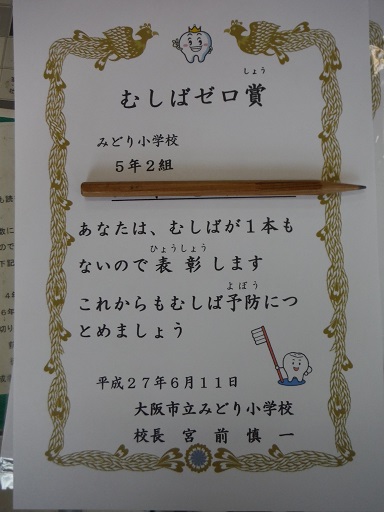 しょう
むしばゼロ賞
みどり小学校
5年2組
あなたは、むしばが1本も
ひょうしょう
ないので表彰します
よぼう
これからもむしば予防につ
とめましょう
平成27年6月11日
大阪市立みどり小学校
校長 宮前慎一